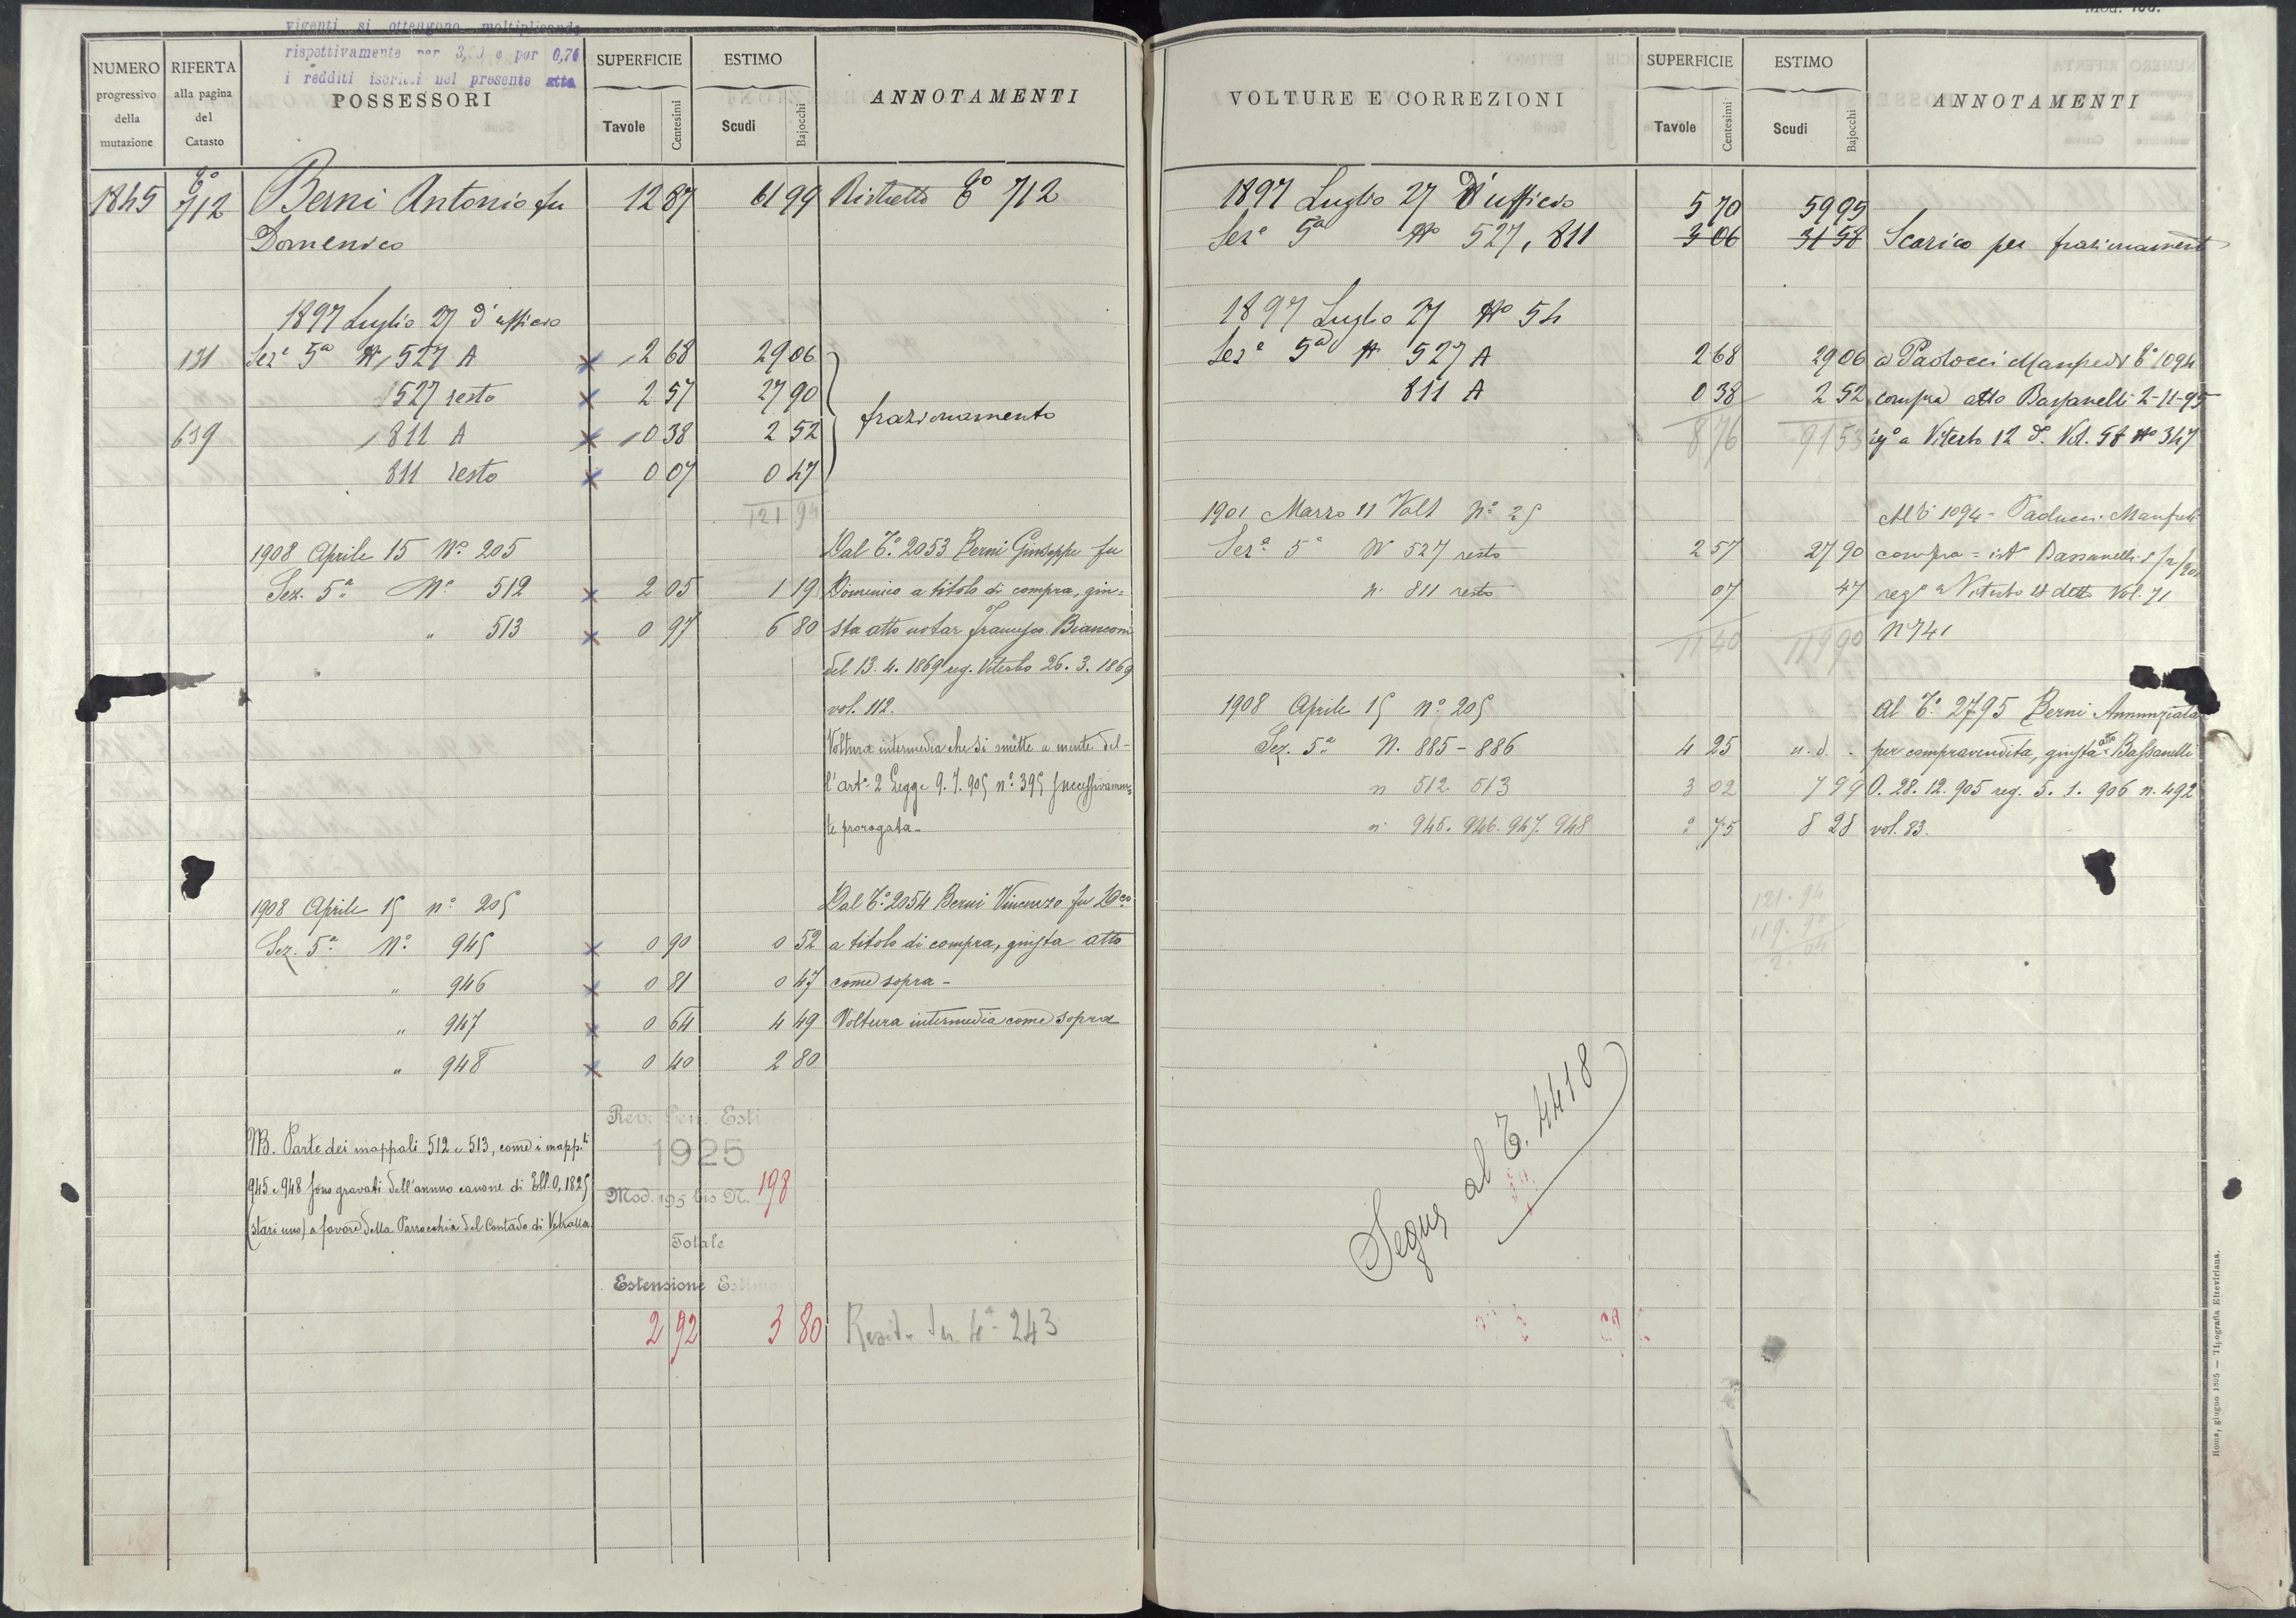 vigenti si ottengono moltiplicando
rispettivamente per 3, e per 0,76
i redditi iscritti nel presente atto
NUMERO progressivo della mutazione
RIFERTA alla pagina del Catasto
POSSESSORI
SUPERFICIE
Tavole
Centesimi
ESTIMO
Scudi
Bajocchi
ANNOTAMENTI
1845 T° 712 Berni Antonio fu 12 87 61 99 Ristretto T° 712
Domenico
1897 Luglio 27 d'ufficio
131 Sez.e 5a N° 527 A x 2 68 29 06
527 resto x 2 57 27 90
frazionamento
639 811 A x 0 38 2 52
811 resto x 0 07 0 47
121 94
1908 Aprile 15 N° 205 Dal T° 2053 Berni Giuseppe fu
Sez. 5a N° 512 x 2 05 1 19 Domenico a titolo di compra, giu=
" 513 x 0 97 6 80 sta atto notar Francesco Bianconi
del 13.4.1869 reg. Viterbo 26.3.1869
vol. 112.
Voltura intermedia che si emette a mente del-
l'art° 2 Legge 9.7.905 n° 395 successivamen=
te prorogata-
1908 Aprile 15 n° 205 Dal T° 2054 Berni Vincenzo fu Dco
Sez. 5a N° 945 x 0 90 0 52 a titolo di compra, giusta atto
" 946 x 0 81 0 47 come sopra-
" 947 x 0 64 4 49 Voltura intermedia come sopra
" 948 x 0 40 2 80
NB. Parte dei mappali 512 e 513, come i mapp.li
945 e 948 sono gravati dell'annuo canone di Ell. 0,1825
(stari uno) a favore della Parrocchia del Contado di Vetralla.
Rev. Gen. Esti
1925
Mod. 195 bis N. 198
Totale
Estensione Estimo
2 92 3 80 243
Mod. 106.
VOLTURE E CORREZIONI
SUPERFICIE
Tavole
Centesimi
ESTIMO
Scudi
Bajocchi
ANNOTAMENTI
1897 Luglio 27 D'ufficio 5 70 59 95
Sez.e 5a N° 527, 811 3 06 31 58 Scarico per frazionamento
1897 Luglio 27 N° 54
Sez.e 5a N° 527 A 2 68 29 06 a Paolocci Manfredi T° 1094
811 A 0 38 2 52 compra atto Bassanelli 2-11-95
8 76 91 53 reg° a Viterbo 12 d. Vol. 58 N° 347
1901 Marzo 11 Volt N° 25 Al T° 1094 - Paolucci Manfredi
Sez.e 5a N° 527 resto 2 57 27 90 compra = ist° Bassanelli
n. 811 resto 07 47 reg° a Viterbo detto Vol. 71
11 40 119 90 N 741
1908 Aprile 15 n° 205 Al T° 2795 Berni Annunziata
Sez. 5a N. 885-886 4 25 n.d. per compravendita, giusta atto Bassanelli
n 512 513 3 02 7 99 O. 28.12.905 reg. 5.1.906 n. 492
n. 945. 946. 947. 948 2 75 8 28 vol. 83.
121.94
119.90
2.04
Segue al T. 4418
Roma, giugno 1895 — Tipografia Elzeviriana.